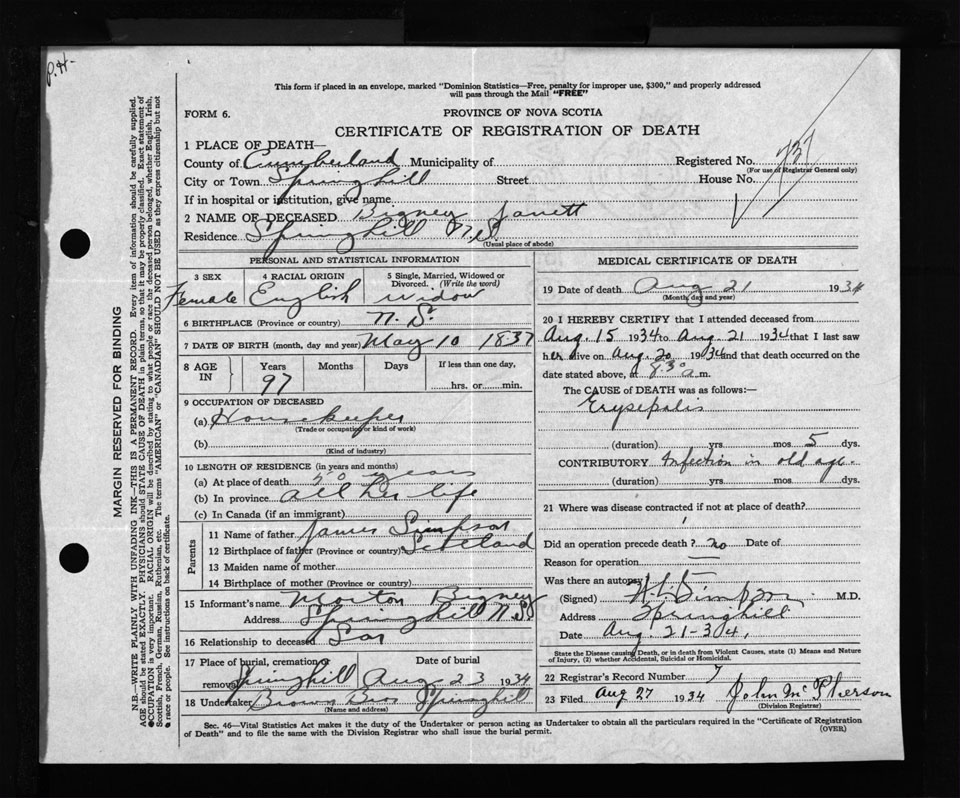 P.H-
This form if placed in an envelope, marked "Dominion Statistics—Free, penalty for improper use, $300," and properly addressed
will pass through the Mail "FREE"
FORM 6.
PROVINCE OF NOVA SCOTIA
CERTIFICATE OF REGISTRATION OF DEATH
1 PLACE OF DEATH—
County of Cumberland Municipality of
Registered No. 737
(For use of Registrar General only)
City or Town Springhill Street House No.
If in hospital or institution, give name
2 NAME OF DECEASED Bigney Janett
Residence Springhill N.S.
(Usual place of abode)
PERSONAL AND STATISTICAL INFORMATION
3 SEX
Female
4 RACIAL ORIGIN
English
5 Single, Married, Widowed or
Divorced. (Write the word)
widow
6 BIRTHPLACE (Province or country) N.S.
7 DATE OF BIRTH (month, day and year) May 10 1837
8 AGE
IN
Years
97
Months
Days
If less than one day,
hrs. or min.
9 OCCUPATION OF DECEASED
(a) Housekeeper
(Trade or occupation or kind of work)
(b)
(Kind of industry)
10 LENGTH OF RESIDENCE (in years and months)
(a) At place of death years
(b) In province all her life
(c) In Canada (if an immigrant)
Parents
11 Name of father James Simpson
12 Birthplace of father (Province or country) Scotland
13 Maiden name of mother
14 Birthplace of mother (Province or country)
15 Informant's name Morton Bigney
Address Springhill N.S.
16 Relationship to deceased Son
17 Place of burial, cremation or
removal Springhill
Date of burial
Aug 23 1934
18 Undertaker Brown Bros Springhill
(Name and address)
MEDICAL CERTIFICATE OF DEATH
19 Date of death Aug 21 1934
(Month, day and year)
20 I HEREBY CERTIFY that I attended deceased from
Aug. 15 1934 to Aug. 21 1934 that I last saw
her alive on Aug. 20 1934 and that death occurred on
date stated above, at 830 a.m.
The CAUSE of DEATH was as follows:—
Erysepalis
(duration) yrs. mos 5 dys.
CONTRIBUTORY Infection in old age.
(duration) yrs. mos. dys.
21 Where was disease contracted if not at place of death?
Did an operation precede death? no Date of
Reason for operation
Was there an autopsy
(Signed) Simpson M.D.
Address Springhill
Date Aug. 21-34,
State the Disease causing Death, or in death from Violent Causes, state (1) Means and Nature
of Injury, (2) whether Accidental, Suicidal or Homicidal.
22 Registrar's Record Number 7
23 Filed Aug 27 1934 John McPherson
(Division Registrar)
Sec. 46—Vital Statistics Act makes it the duty of the Undertaker or person acting as Undertaker to obtain all the particulars required in the "Certificate of Registration
of Death" and to file the same with the Division Registrar who shall issue the burial permit.
(OVER)
MARGIN RESERVED FOR BINDING
N.B.—WRITE PLAINLY WITH UNFADING INK—THIS IS A PERMANENT RECORD. Every item of information should be carefully supplied.
AGE should be stated EXACTLY. PHYSICIANS should STATE CAUSE OF DEATH in plain terms, so that it may be properly classified. Exact statement of
OCCUPATION is very important. RACIAL ORIGIN will be described by stating to what people or race the deceased person belonged, whether English, Irish,
Scottish, French, German, Russian, Ruthenian, etc. The terms "AMERICAN" or "CANADIAN" SHOULD NOT BE USED as they express citizenship but not
a race or people. See instructions on back of certificate.